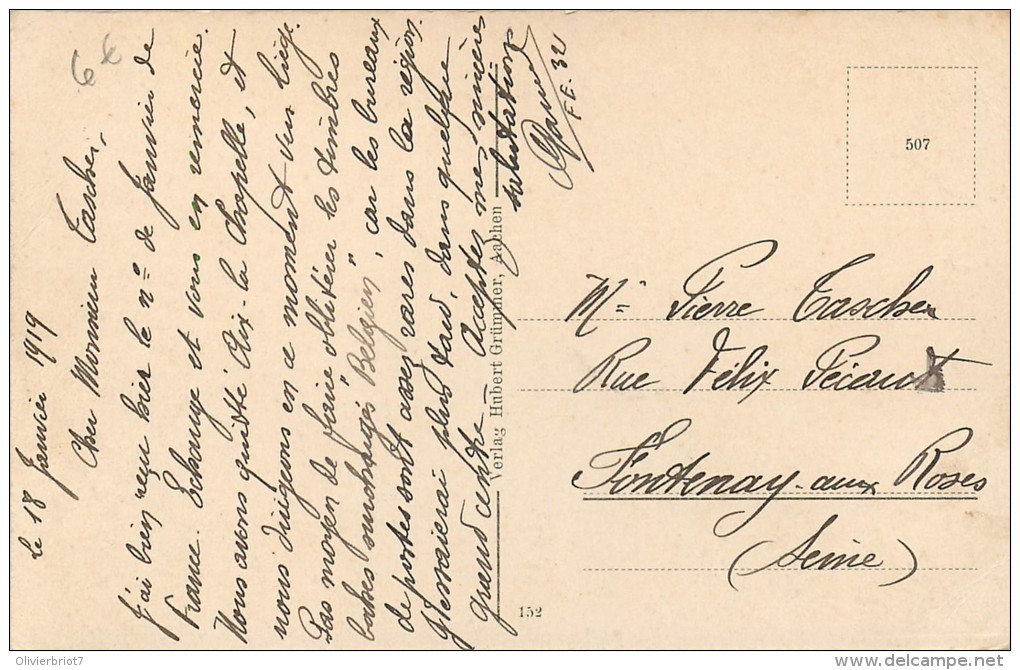 6 €
le 18 Janvier 1919
Cher Monsieur Taschen,
J'ai bien reçu hier le nº de Janvier de
France Echange et vous en remercie.
Nous avons quitté Aix-la Chapelle, et
nous dirigeons en ce moment vers Liège.
Pas moyen de faire oblitérer les timbres
boches surchargés "Belgien", car les bureaux
de postes sont assez rares dans la région.
J'essaierai plus tard, dans quelque
grand centre. Acceptez mes sincères
salutations
F.E. 32
Verlag Hubert Grümmer, Aachen
152
507
Mr Pierre Taschen
Rue Félix Pécaut
Fontenay-aux Roses
(Seine)
Olivierbriot7
http://www.delcampe.net